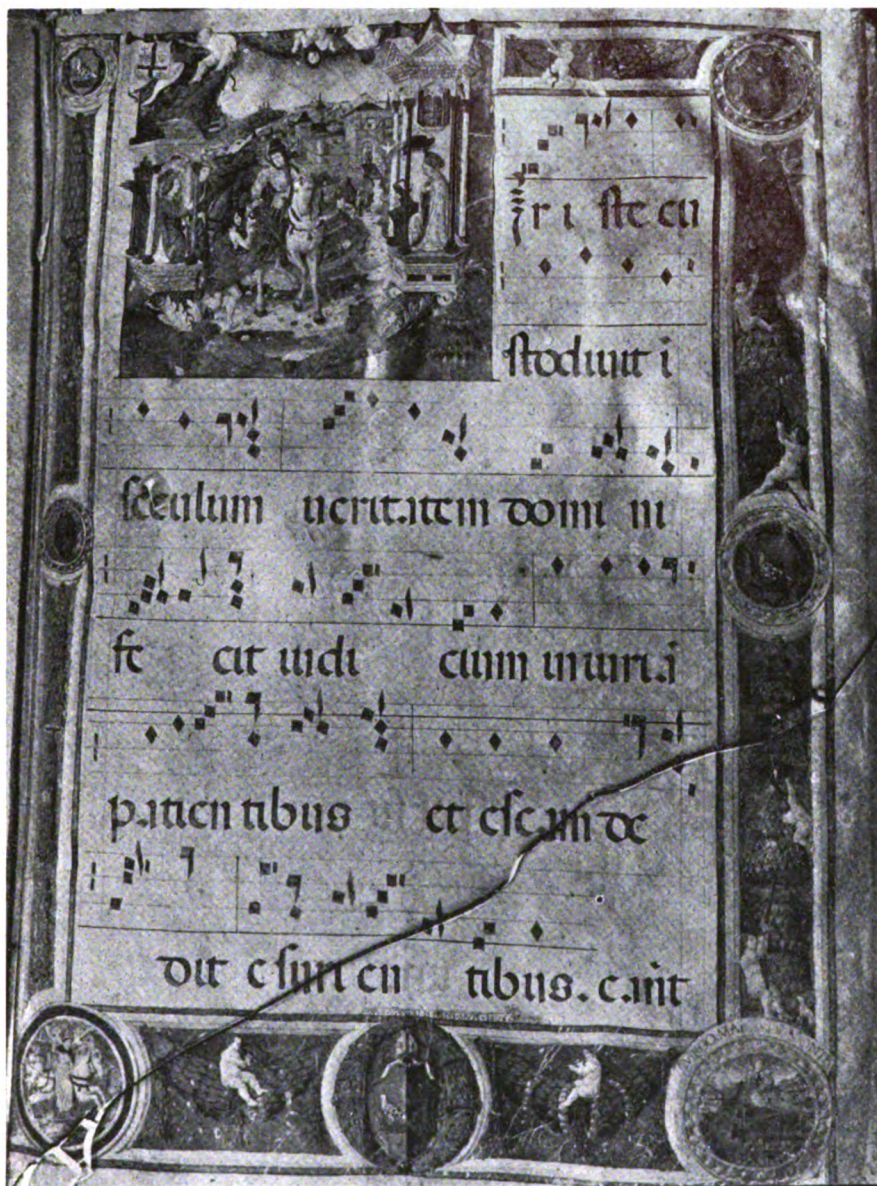 i ste cu
stodiuit ī
seculum ueritatem domi ni
fe cit iudi cium iniuriā
patien tibus et escam de
dit esuri en tibus. cant